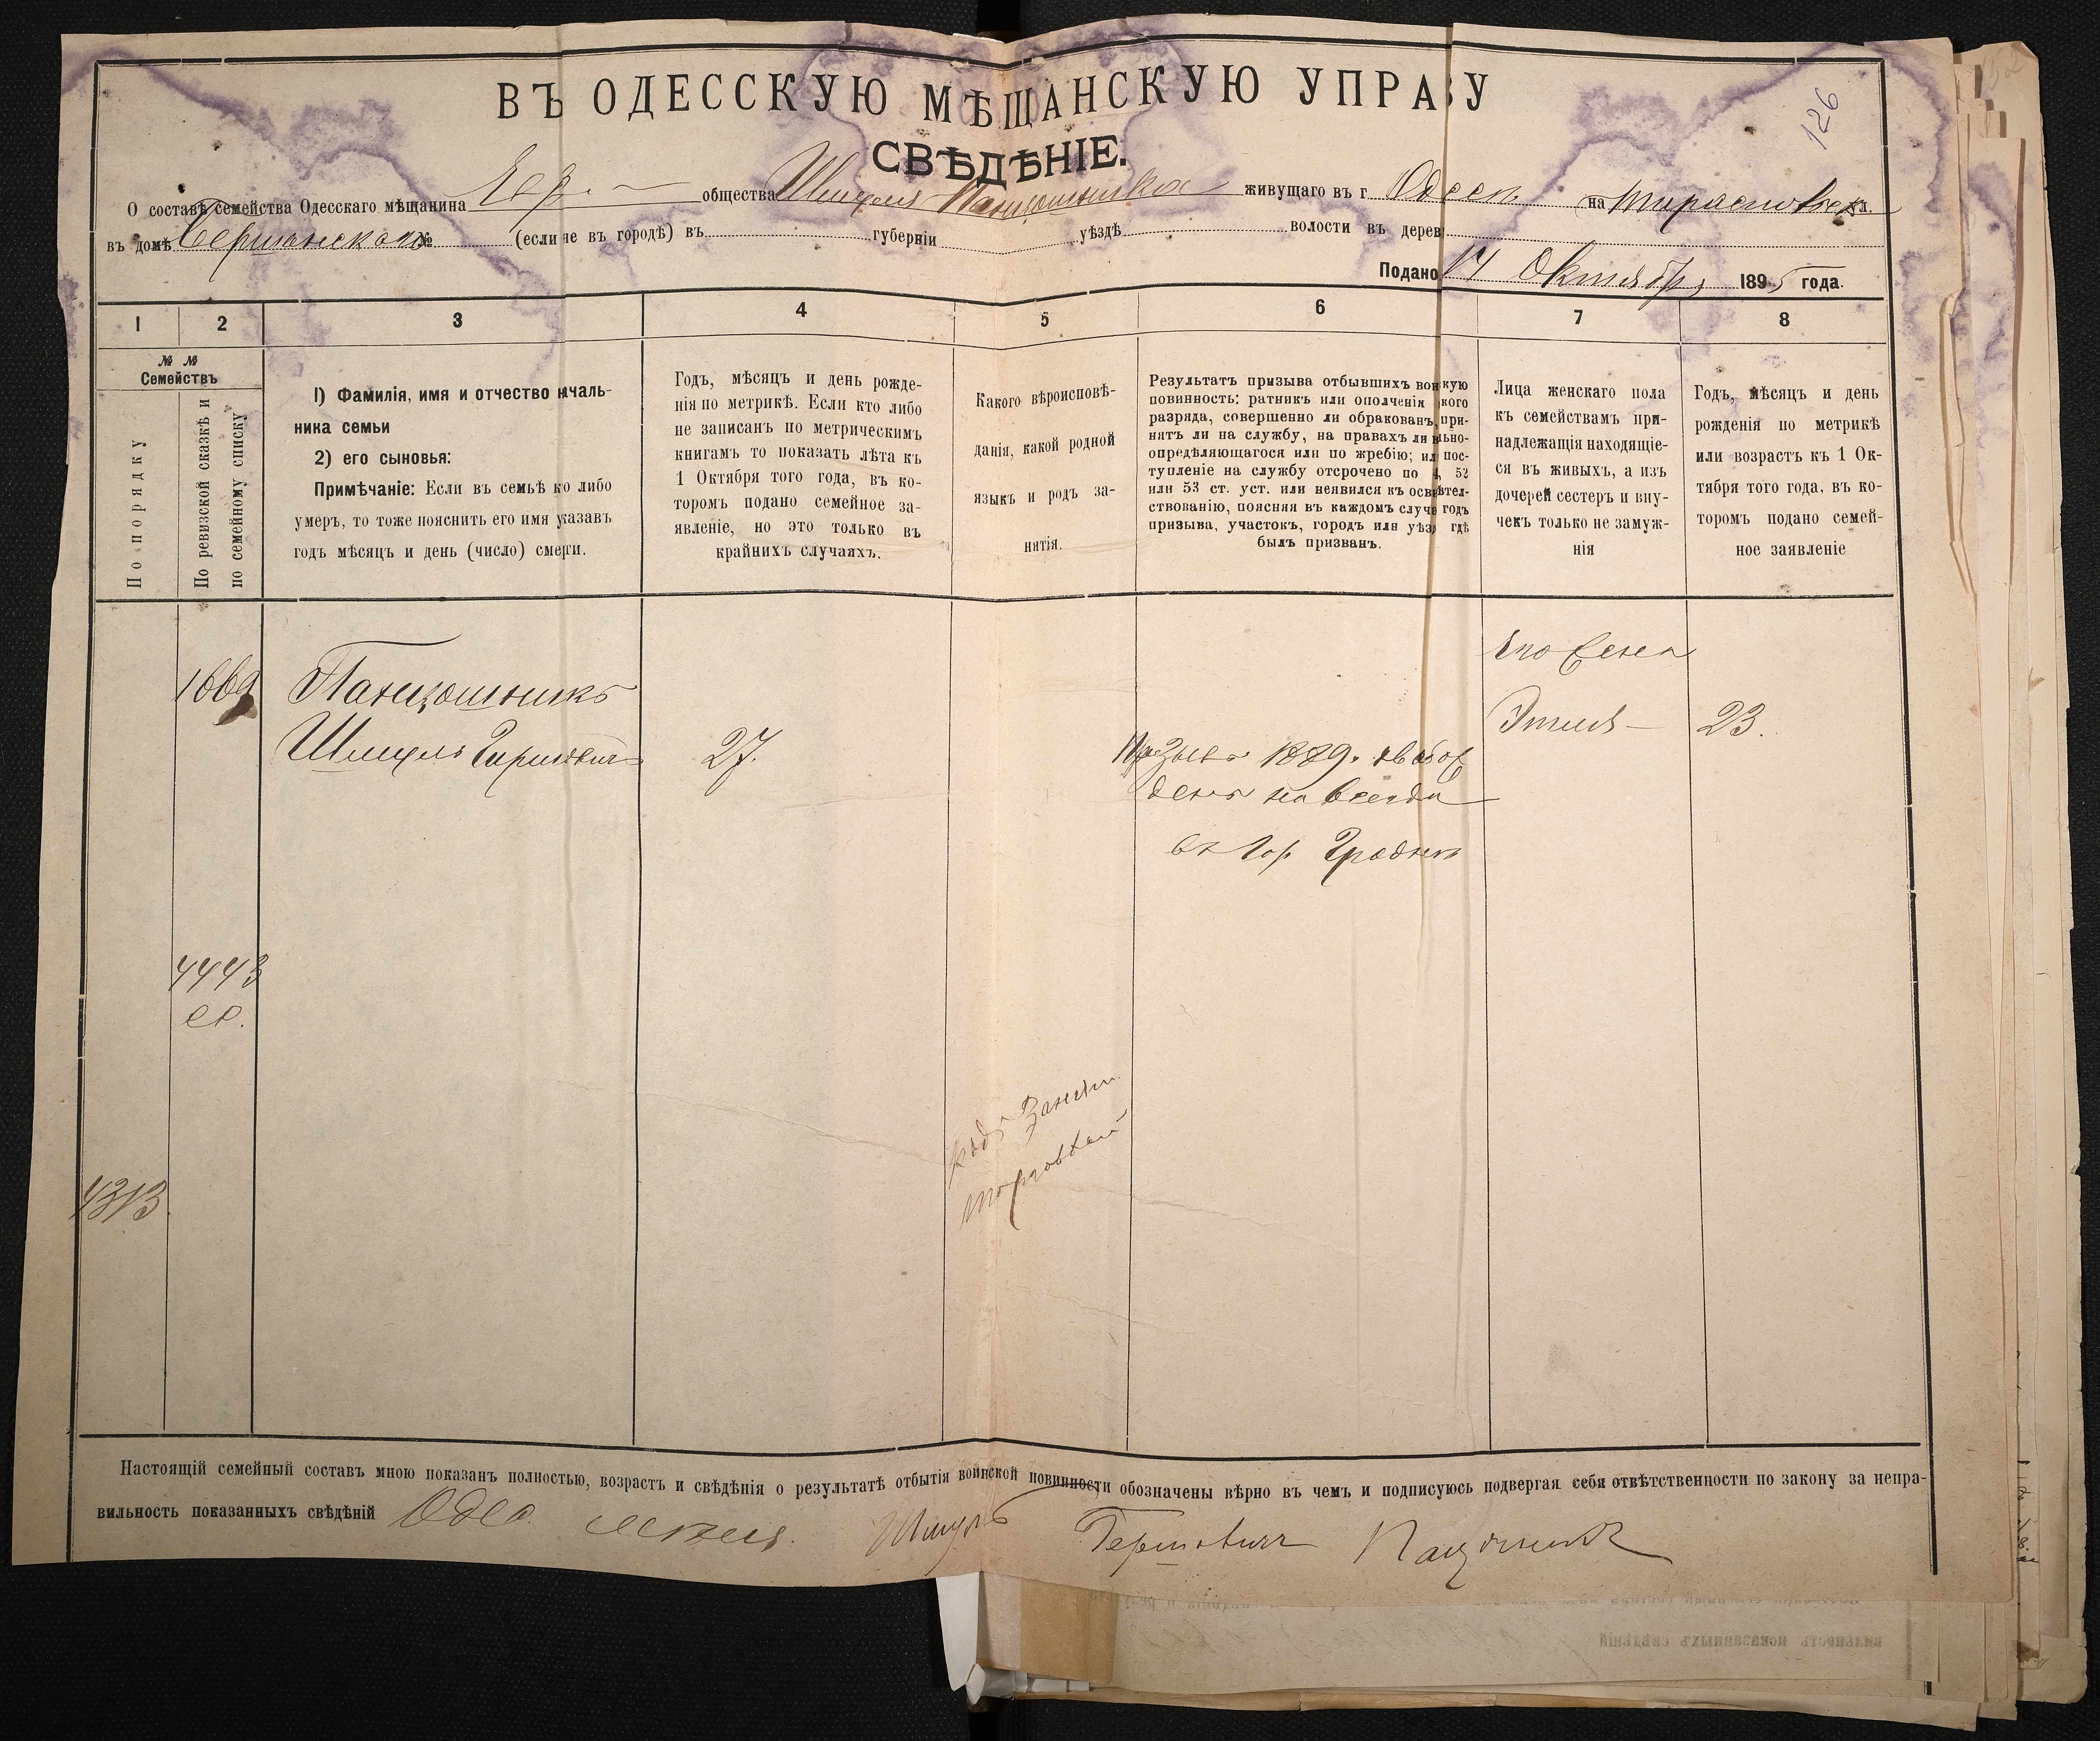 126
ВЪ ОДЕССКУЮ МѢЩАНСКУЮ УПРАВУ
СВѢДѢНІЕ.
О составѣ семейства Одесскаго мѣщанина Евр. общества Шмуля живущаго въ г. Одессѣ на Тирасполь ул.
въ домѣ № (если не въ городѣ) въ губерніи уѣздѣ волости въ дерев
Подано 14 Октябр 1895 года.
1 2 3 4 5 6 7 8
№ №
Семействъ
По порядку
По ревизской сказкѣ и
по семейному списку
1) Фамилія, имя и отчество началь-
ника семьи
2) его сыновья:
Примѣчаніе: Если въ семьѣ кто либо
умеръ, то тоже пояснить его имя указавъ
годъ мѣсяцъ и день (число) смерти.
Годъ, мѣсяцъ и день рожде-
нія по метрикѣ. Если кто либо
не записанъ по метрическимъ
книгамъ то показать лѣта къ
1 Октября того года, въ ко-
торомъ подано семейное за-
явленіе, но это только въ
крайнихъ случаяхъ.
Какого вѣроисповѣ-
данія, какой родной
языкъ и родъ за-
нятія.
Результатъ призыва отбывшихъ воинскую
повинность: ратникъ или ополченія какого
разряда, совершенно ли обракованъ, при-
нятъ ли на службу, на правахъ ли вольно-
опредѣляющагося или по жребію; или пос-
тупленіе на службу отсрочено по 4, 52
или 53 ст. уст. или неявился къ освидѣтел-
ствованію, поясняя въ каждомъ случаѣ годъ
призыва, участокъ, городъ или уѣздъ гдѣ
былъ призванъ.
Лица женскаго пола
къ семействамъ при-
надлежащія находящіе-
ся въ живыхъ, а изъ
дочерей сестеръ и вну-
чекъ только не замуж-
нія
Годъ, мѣсяцъ и день
рожденія по метрикѣ
или возрастъ къ 1 Ок-
тября того года, въ ко-
торомъ подано семей-
ное заявленіе
его жена
1669
Этля 23.
Шмуль Гершовичъ 27.
Призыва 1889. свобож
денъ на всегда
въ гор Гроднѣ
4443
ер.
родъ занятія
торговлей
4313
Настоящій семейный составъ мною показанъ полностью, возрастъ и свѣдѣнія о результатѣ отбытія воинской повинности обозначены вѣрно въ чемъ и подписуюсь подвергая себя отвѣтственности по закону за непра-
вильность показанныхъ свѣдѣній Одес. Шмуль Гершовичъ